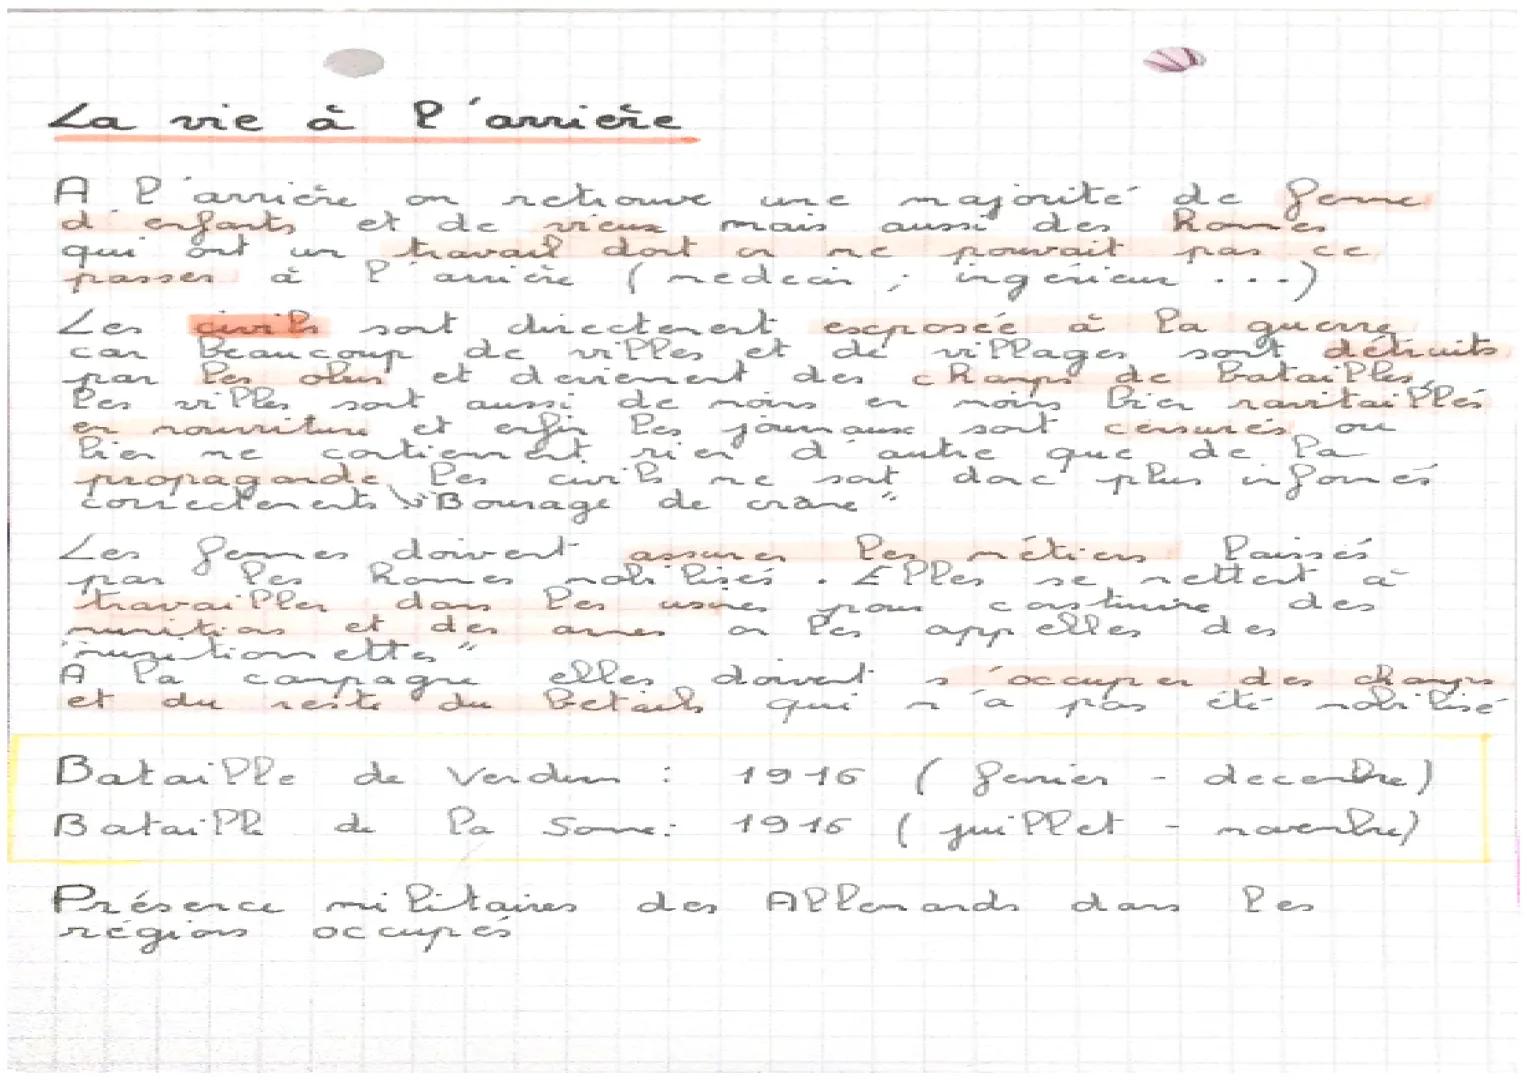 La vie à l'arrière
A l'arrière on retrouve une majorité de femme
d'enfants et de vieux mais aussi des hommes
qui ont un travail dont on ne pouvait pas ce
passer à l'arrière (medecin ; ingénieur ...)
Les civils sont directement exposée à la guerre
car beaucoup de villes et de villages sont détruits
par les obus et deviennent des champs de batailles,
les villes sont aussi de moins en moins bien ravitaillés
en nourriture et enfin les journaux sont censurés ou
bien ne contiennent rien d'autre que de la
propagande, les civils ne sont donc plus informés
correctements "Bourage de crâne"
Les femmes doivent assurer les métiers laissés
par les hommes mobilisés. Elles se mettent à
travailler dans les usines pour construire des
munitions et des armes on les appelles des
"munitionettes"
A la campagne elles doivent s'occuper des champs
et du reste du betails qui n'a pas été mobilisé
Bataille de Verdun : 1916 (fevrier - decembre)
Bataill de la Somme : 1916 (juillet - novembre)
Présence militaires des Allemands dans les
régions occupés